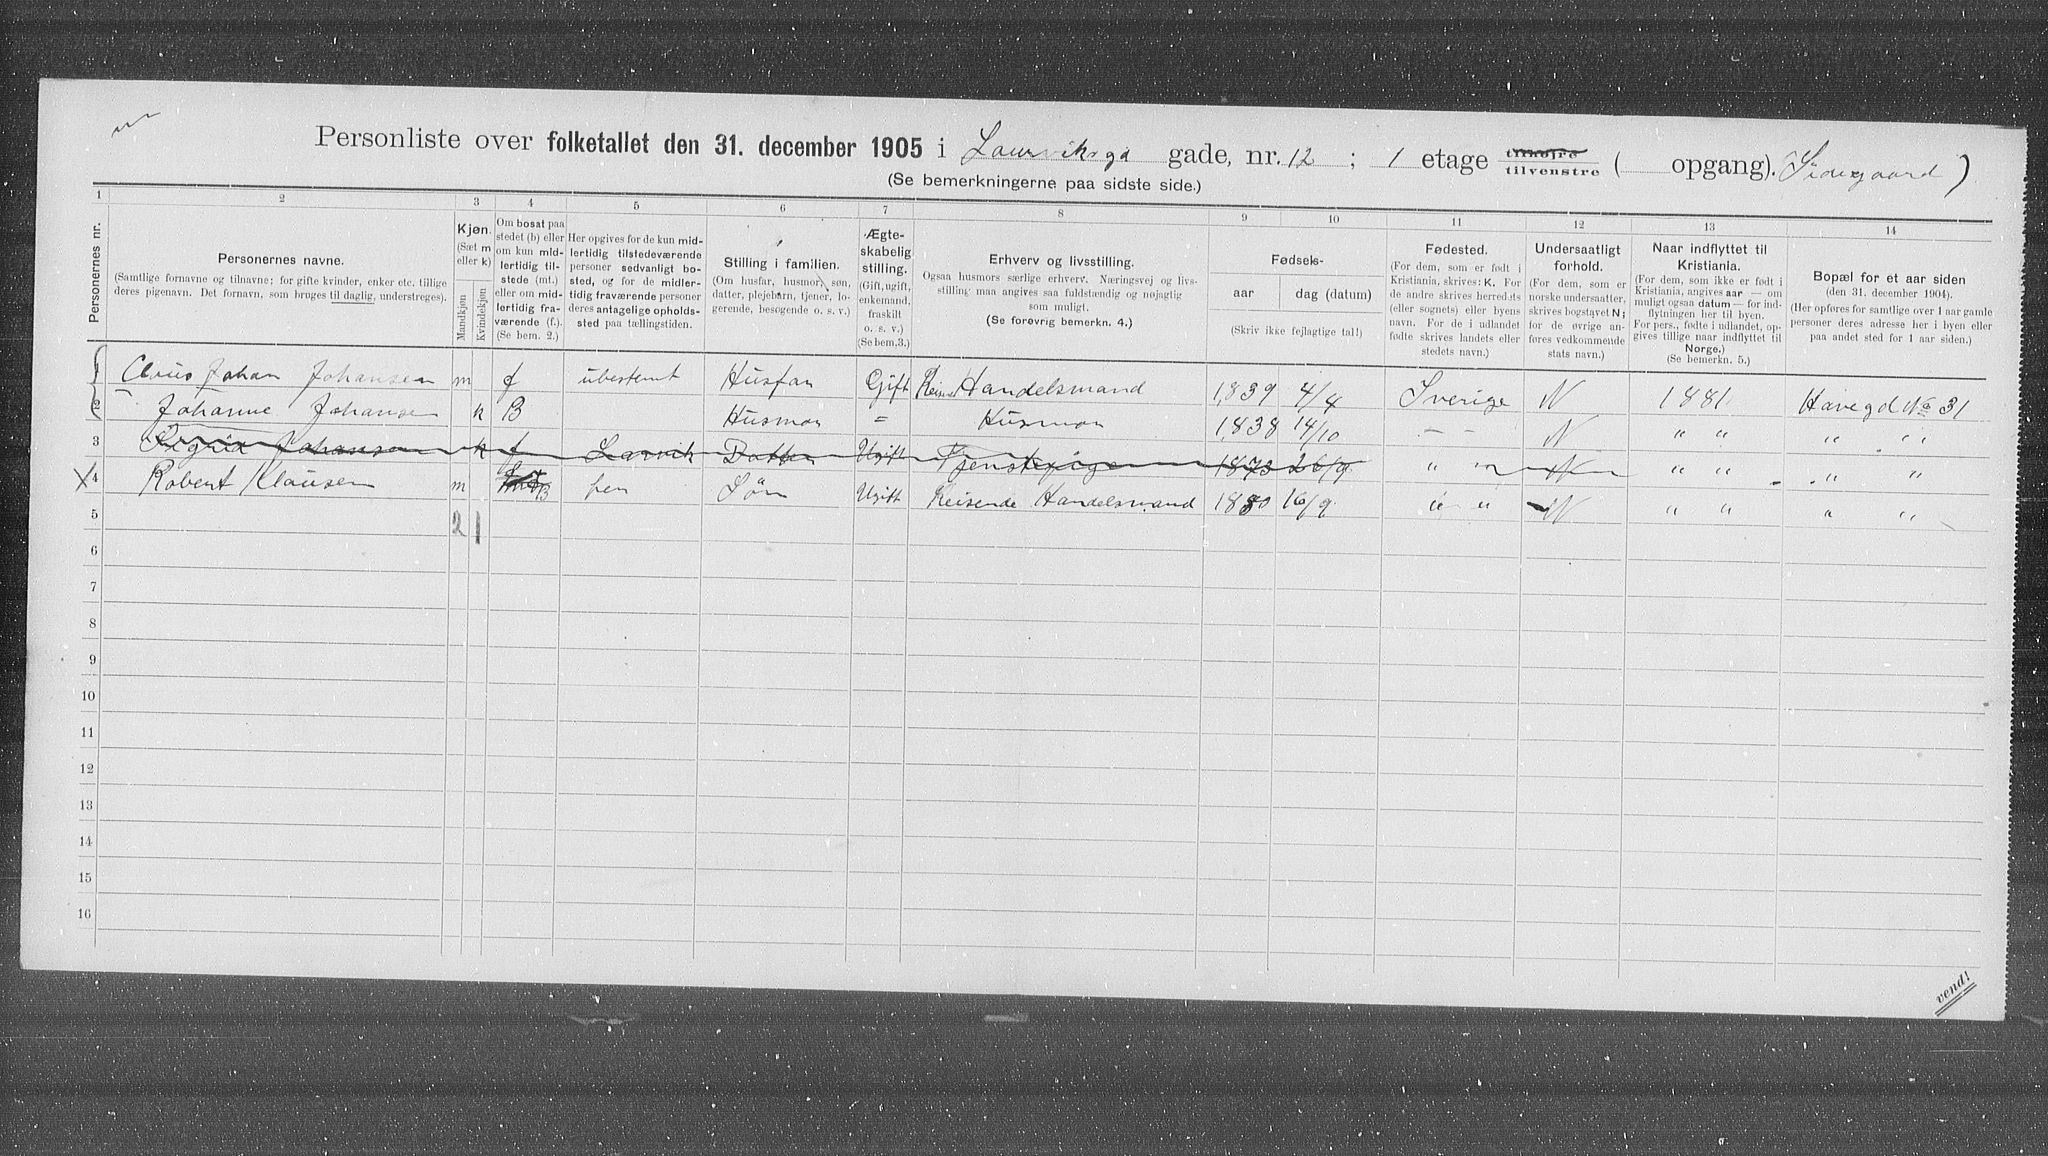 Personliste over folketallet den 31. december 1905 i Laurviksgd gade, nr. 12 ; 1 etage tilhøjre tilvenstre ( opgang). (Sidegaard)
(Se bemerkningerne paa sidste side.)
1 2 3 4 5 6 7 8 9 10 11 12 13 14
Personernes nr.
Personernes navne.
(Samtlige fornavne og tilnavne; for gifte kvinder, enker etc. tillige deres pigenavn. Det fornavn, som bruges til daglig, understreges).
Kjøn.
(Sæt m eller k)
Mandkjøn
Kvindekjøn
Om bosat paa stedet (b) eller om kun midlertidig tilstede (mt.) eller om midlertidig fraværende (f.). (Se bem. 2.)
Her opgives for de kun midlertidig tilstedeværende personer sedvanligt bosted, og for de midlertidig fraværende personer deres antagelige opholdssted paa tællingstiden.
Stilling i familien.
(Om husfar, husmor, søn, datter, plejebarn, tjener, logerende, besøgende o. s. v.)
Ægteskabelig stilling.
(Gift, ugift, enkemand, fraskilt o. s. v.) (Se bem. 3.)
Erhverv og livsstilling.
Ogsaa husmors særlige erhverv. Næringsvej og livsstilling maa angives saa fuldstændig og nøjagtig som muligt.
(Se forøvrig bemerkn. 4.)
Fødsels-
aar
dag (datum)
(Skriv ikke fejlagtige tal!)
Fødested.
(For dem, som er født i Kristiania, skrives: K. For de andre skrives herredets (eller sognets) eller byens navn. For de i udlandet fødte skrives landets eller stedets navn.)
Undersaatligt forhold.
(For dem, som er norske undersaatter, skrives bogstavet N; for de øvrige anføres vedkommende stats navn.)
Naar indflyttet til Kristiania.
(For dem, som ikke er født i Kristiania, angives aar — om muligt ogsaa datum — for indflytningen her til byen. For pers., fødte i udlandet, opgives tillige naar indflyttet til Norge.)
(Se bemerkn. 5.)
Bopæl for et aar siden
(den 31. december 1904.)
(Her opføres for samtlige over 1 aar gamle personer deres adresse her i byen eller paa andet sted for 1 aar siden.)
1 Claus Johan Johansen m f ubestemt Husfar Gift Reisende Handelsmand 1839 4/4 Sverige N 1881 Havegd No 31
2 Johanne Johansen k B Husmor = Husmor 1838 14/10 — — N " " " "
3 Sigrid Johansen k f Larvik Datter Ugift Tjenestepige 1873 26/9 " " N " " " "
4 Robert Klausen m B Søn Ugift Reisende Handelsmand 1880 16/9 " " N " " " "
5
2 1
6
7
8
9
10
11
12
13
14
15
16
vend!